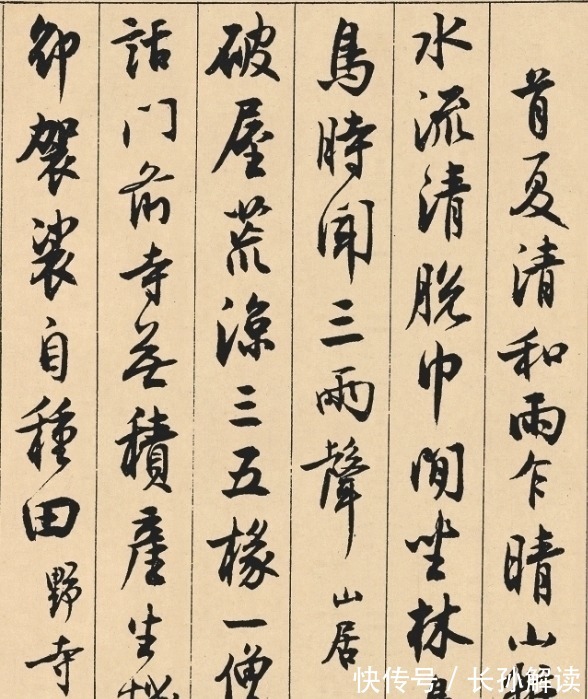 首夏清和雨乍晴山
水流清脫巾閒坐林
鳥時聞三兩聲 山居
破屋荒涼三五椽一僧
話門前寺無積產生
卻袈裟自種田 野寺
快传号/长孙解读